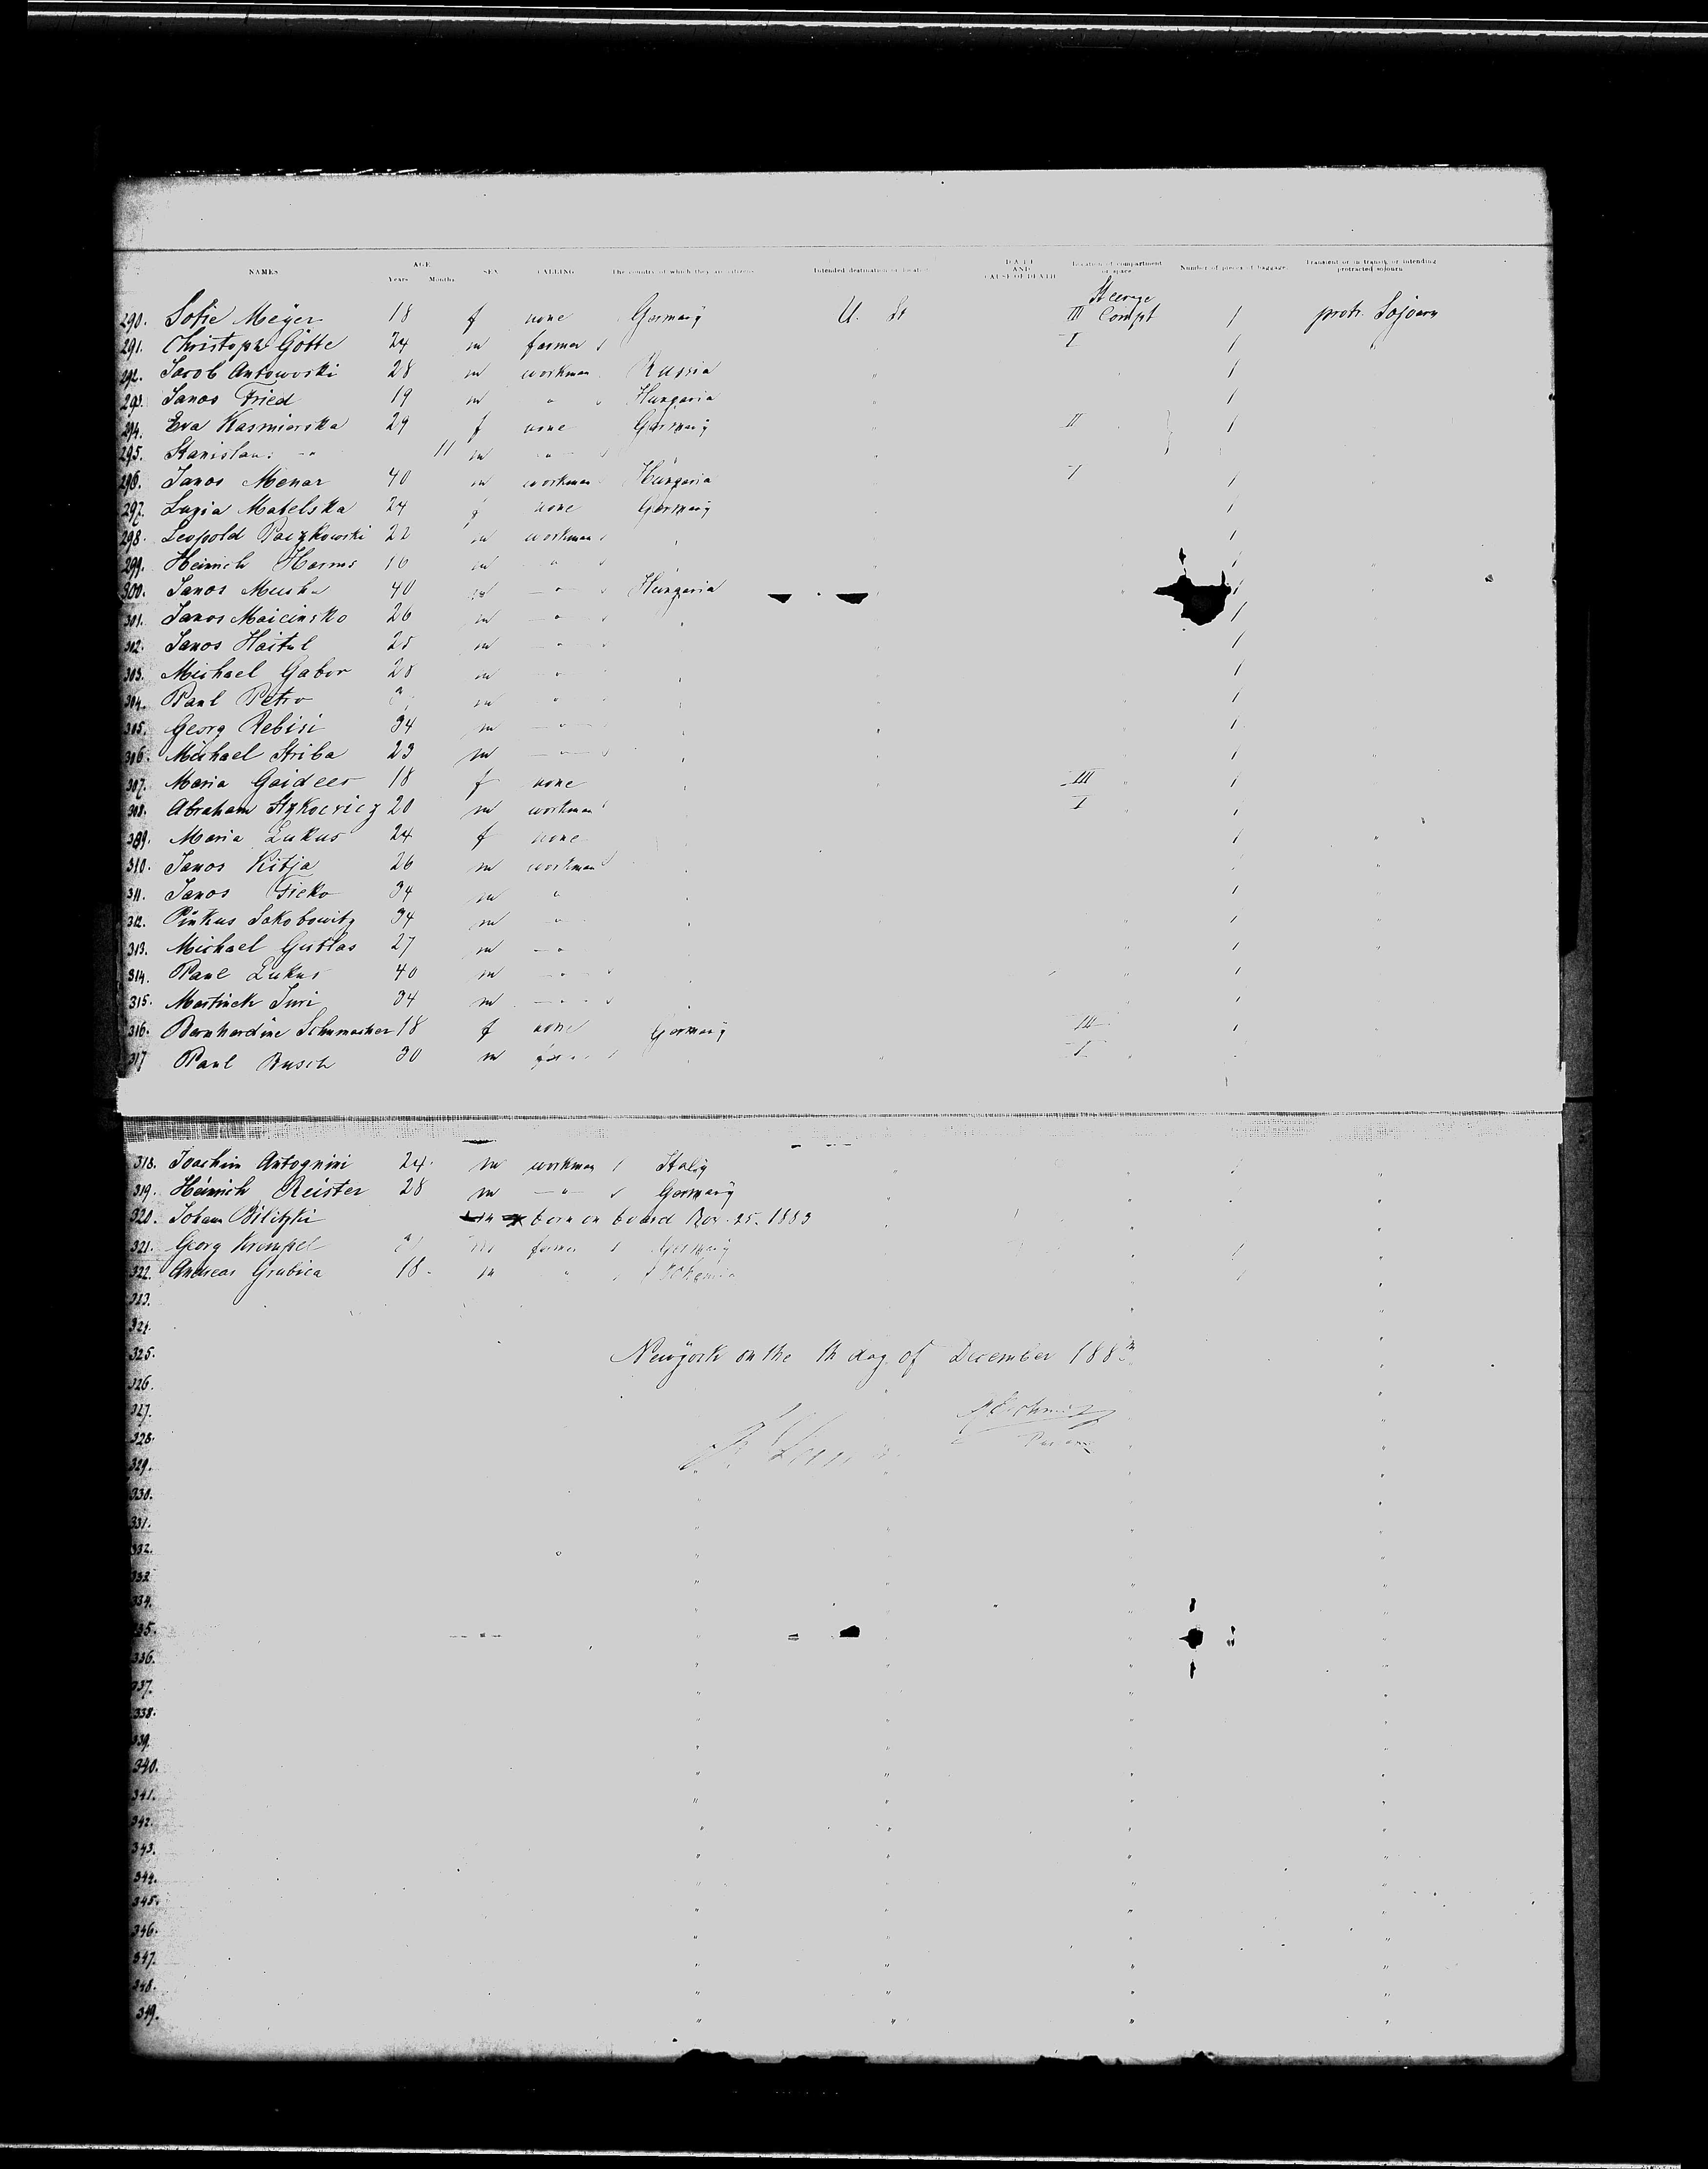 NAMES AGE Years Months SEX CALLING The country of which they are citizens Intended destination or location DATE AND CAUSE OF DEATH Location of compartment or space Number of pieces of baggage Transient or in transit, or intending protracted sojourn
Steerage
290. Sofie Meÿer 18 f none Germanÿ U. St III Compt 1 protr. Sojourn
291. Christoph Götte 24 m farmer I 1
292. Jacob Antowski 28 m workman Russia " 1
293. Janos Fried 19 m " Hungaria " 1
294. Eva Kasmierska 29 f none Germanÿ " II 1
295. Stanislaus -"- 11 m "
296. Janos Menar 40 m workman Hungaria I 1
297. Luzia Matelska 24 f none Germanÿ 1
298. Leopold Paczkowski 22 m workman " 1
299. Heinrich Harms 16 m " 1
300. Janos Musha 40 m -"- Hungaria 1
301. Janos Maicinsko 26 m -"- " 1
302. Janos Haitul 25 m -"- 1
303. Michael Gabor 28 m " 1
304. Paul Petro m " 1
305. Georg Rebisi 34 m -"- 1
306. Michael Striba 23 m -"- 1
307. Maria Gaidees 18 f none III " 1
308. Abraham 20 m workman I " 1
309. Maria Lukus 24 f none 1 "
310. Janos Kitja 26 m workman
311. Janos Ficko 34 m " 1
312. Pinkus Jakobowitz 34 m " 1
313. Michael Gublas 27 m -"- 1
314. Paul Lukus 40 m -"- 1
315. Martinek Juri 34 m -"- 1
316. Bernhardine Schumacher 18 f none Germanÿ III 1
317 Paul Busch 30 m I "
318. Joachim Antognini 24 m workman Italy
319. Heinrich Reister 28 m -"- Germanÿ
320. Johann Bilitzki m born on board Nov. 25. 1883
321. Georg Krempel farmer Germanÿ 1
322. Andreas Grubica 18 m " 1
323.
324.
325. Newÿork on the th day of December 188
326.
327.
328.
329.
330.
331.
332.
332
334.
335.
336.
337.
338.
339.
340.
341.
342.
343.
344.
345.
346.
347.
348.
349.